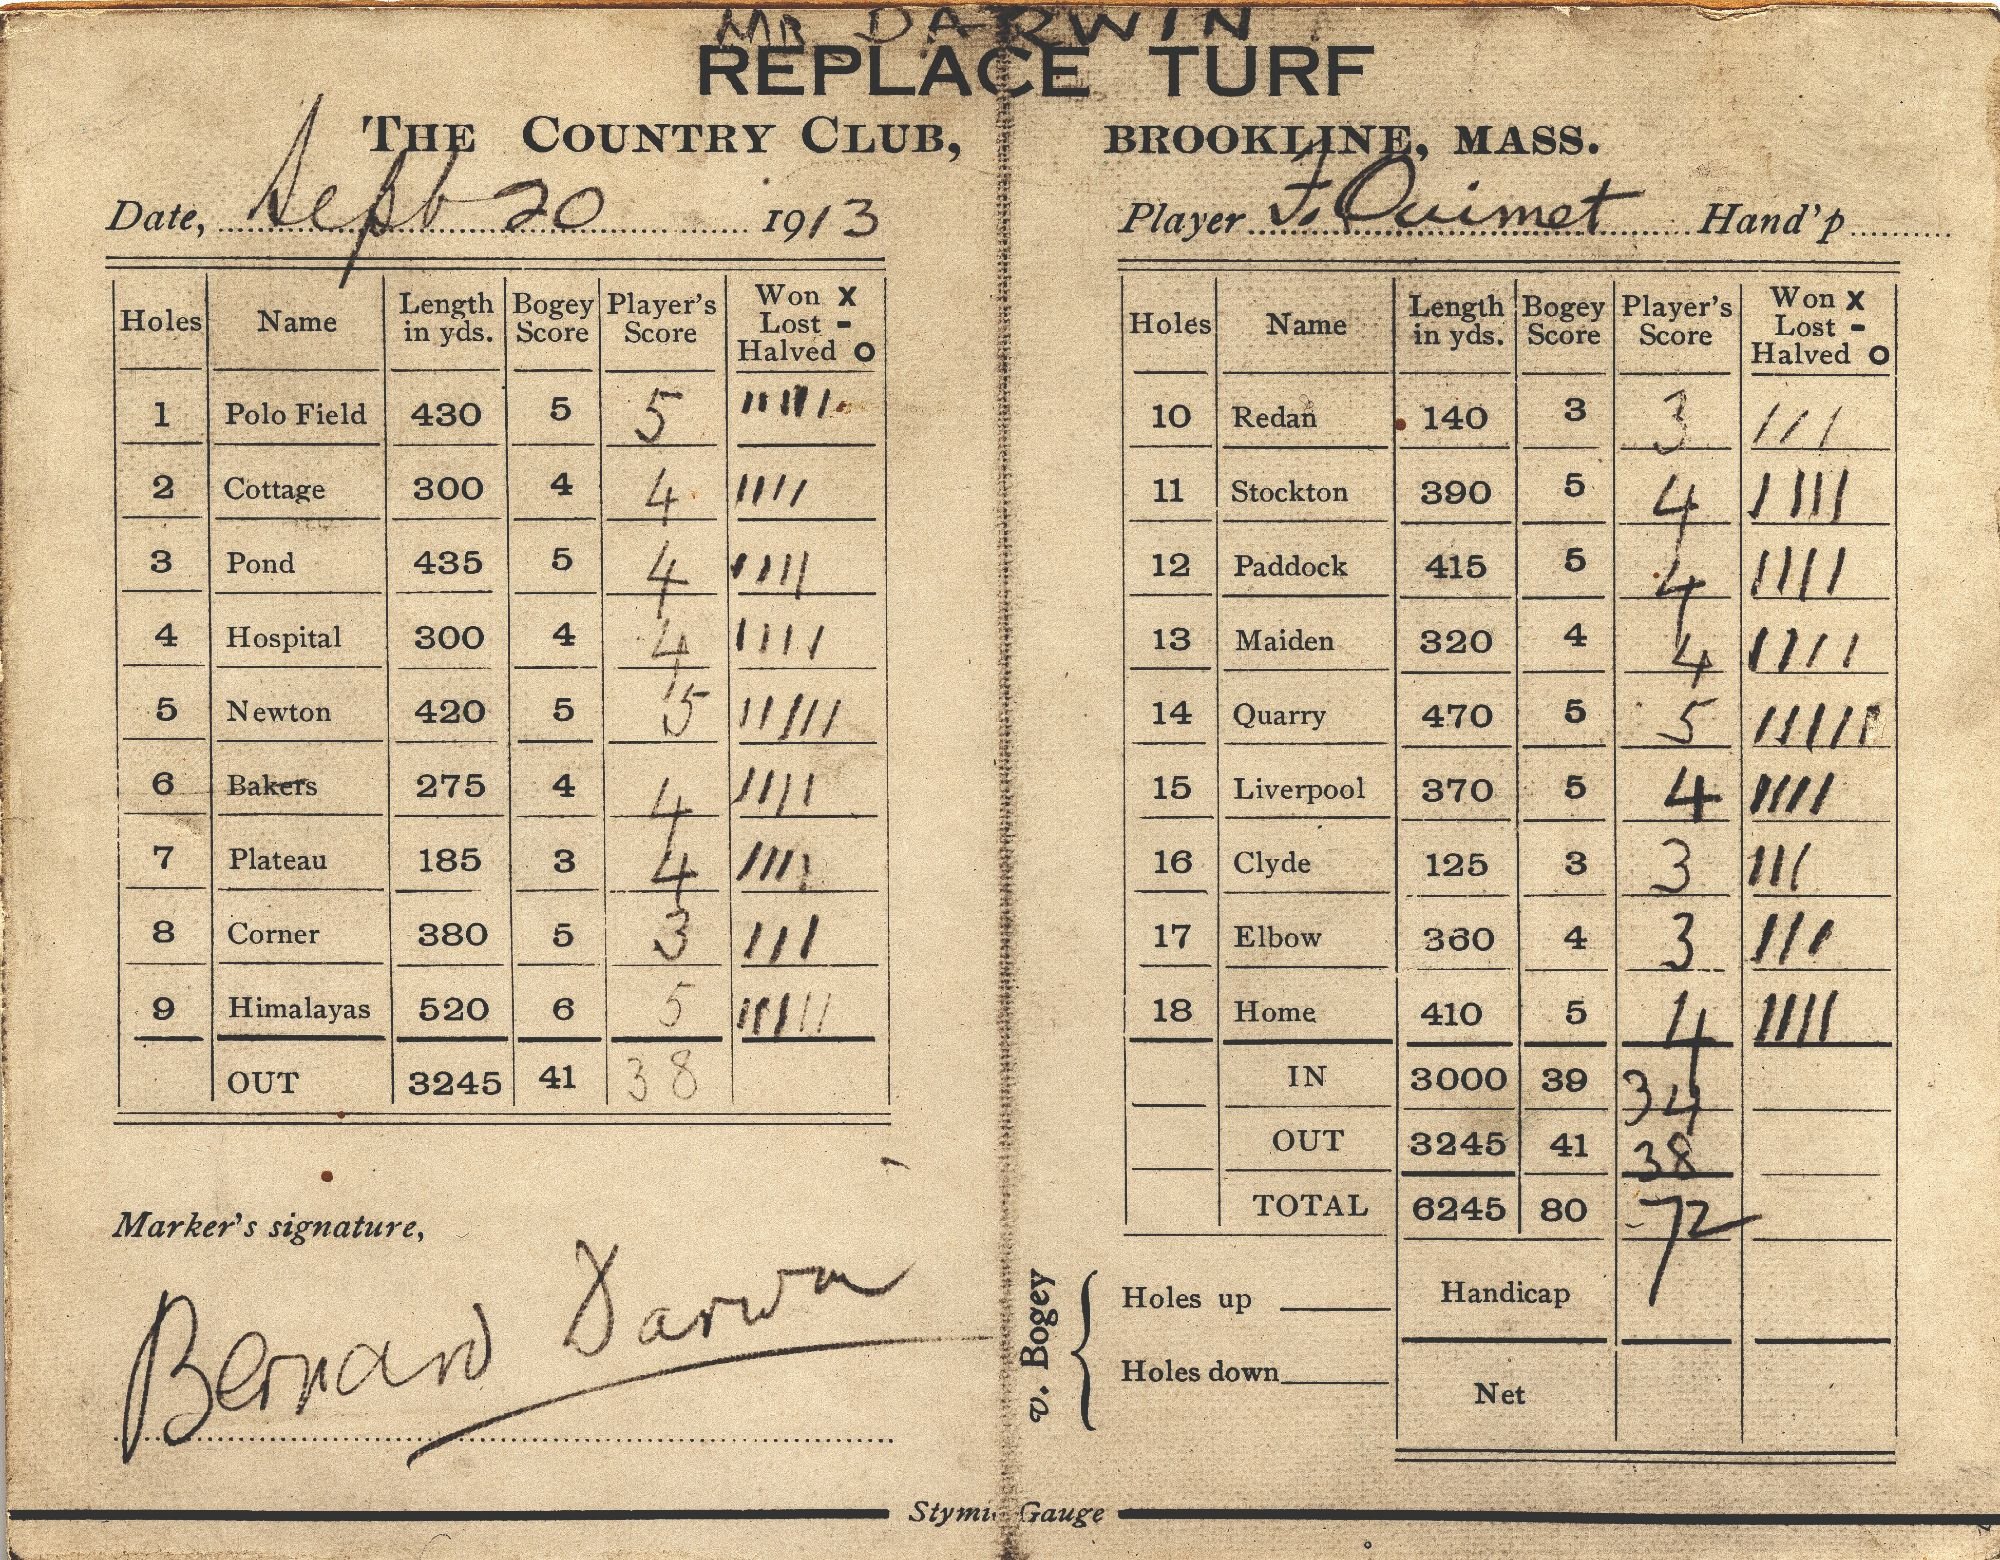 MR DARWIN
REPLACE TURF
THE COUNTRY CLUB, BROOKLINE, MASS.
Date, Sept 20 1913
Player F. Ouimet Hand'p
Holes Name Length in yds. Bogey Score Player's Score Won X Lost - Halved O
1 Polo Field 430 5 5
2 Cottage 300 4 4
3 Pond 435 5 4
4 Hospital 300 4 4
5 Newton 420 5 5
6 Bakers 275 4 4
7 Plateau 185 3 4
8 Corner 380 5 3
9 Himalayas 520 6 5
OUT 3245 41 38
Marker's signature,
Bernard Darwin
Holes Name Length in yds. Bogey Score Player's Score Won X Lost - Halved O
10 Redan 140 3 3
11 Stockton 390 5 4
12 Paddock 415 5 4
13 Maiden 320 4 4
14 Quarry 470 5 5
15 Liverpool 370 5 4
16 Clyde 125 3 3
17 Elbow 360 4 3
18 Home 410 5 4
IN 3000 39 34
OUT 3245 41 38
TOTAL 6245 80 72
v. Bogey
Holes up
Holes down
Handicap
Net
Stymie Gauge